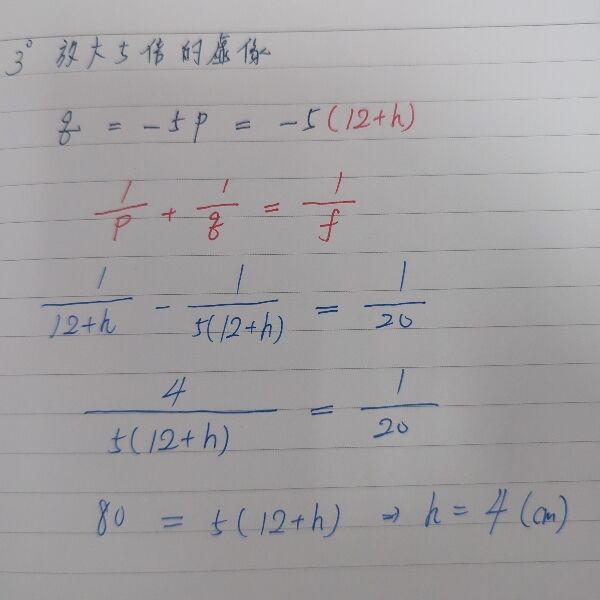 3° 放大5倍的虛像
q = -5p = -5(12+h)
1/p + 1/q = 1/f
1/(12+h) - 1/(5(12+h)) = 1/20
4/(5(12+h)) = 1/20
80 = 5(12+h) ⇒ h = 4 (cm)